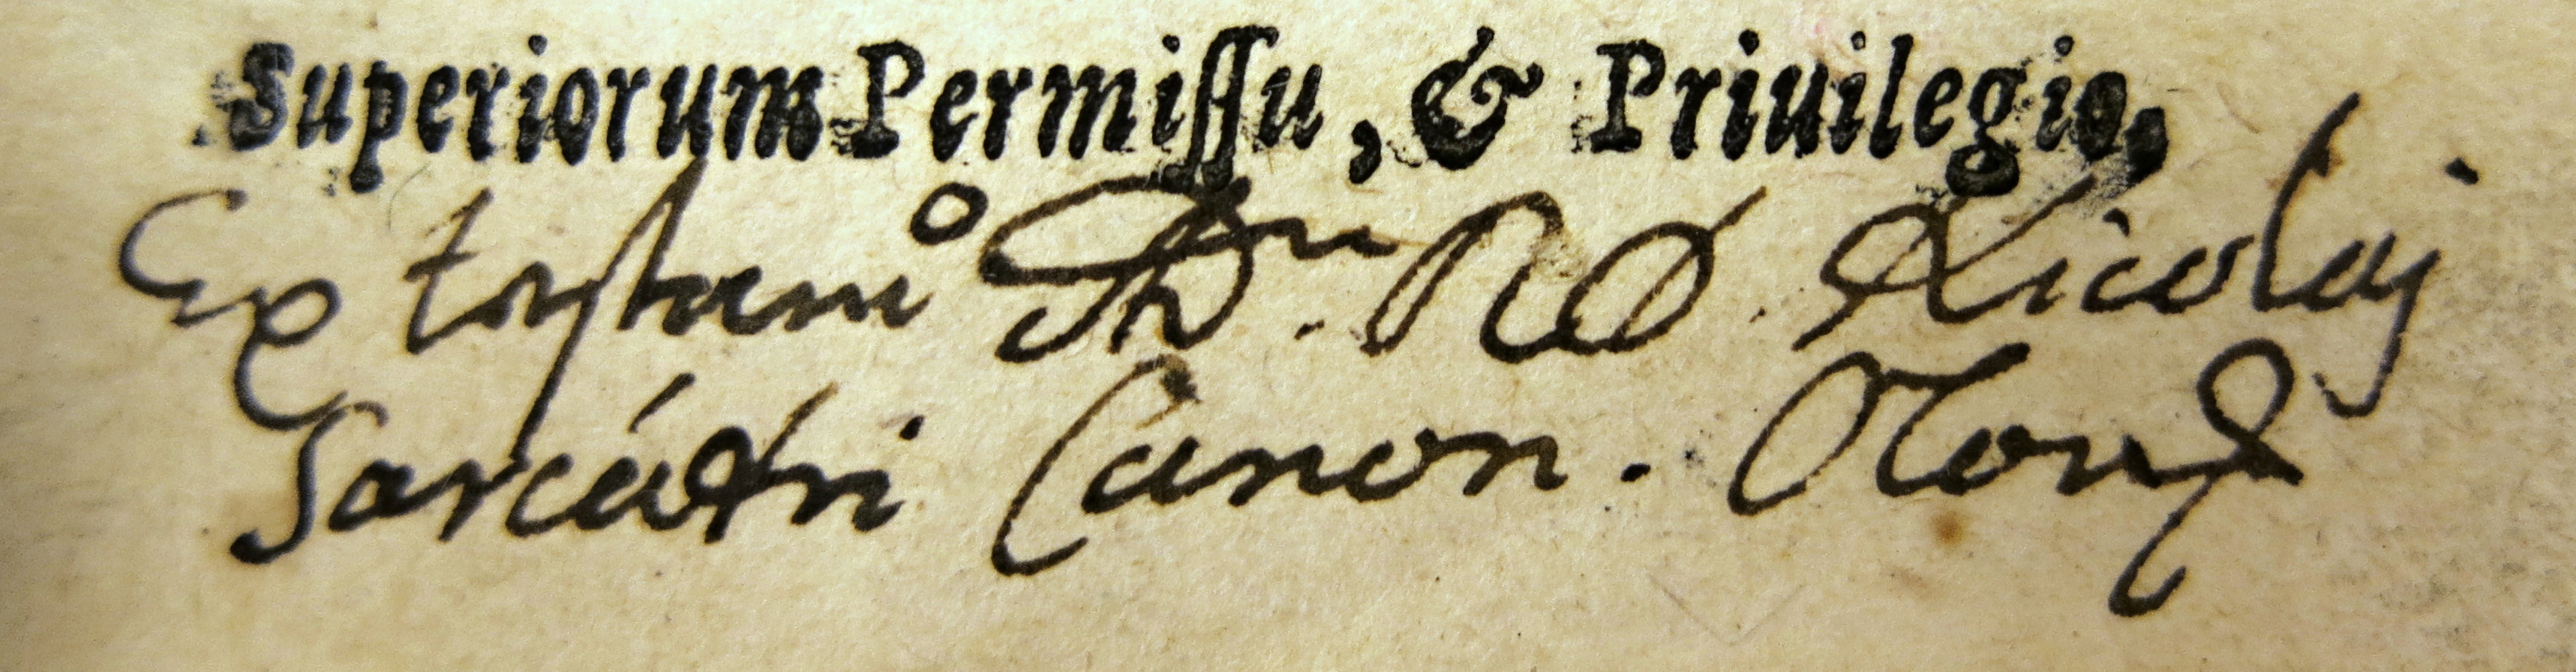 Superiorum Permiſſu, & Priuilegio,
Ex testam° Adm. RD. Nicolaj
Sarcútri Canon. Olom